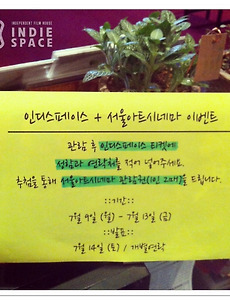 INDEPENDENT FILM HOUSE
INDIE
SPACE
인디스페이스 + 서울아트시네마 이벤트
관람 후 인디스페이스 티켓에
성함과 연락처를 적어 넣어주세요.
추첨을 통해 서울아트시네마 관람권(1인 2매)을 드립니다.
::기간::
7월 9일 (월) - 7월 13일 (금)
::발표::
7월 14일 (토) / 개별연락